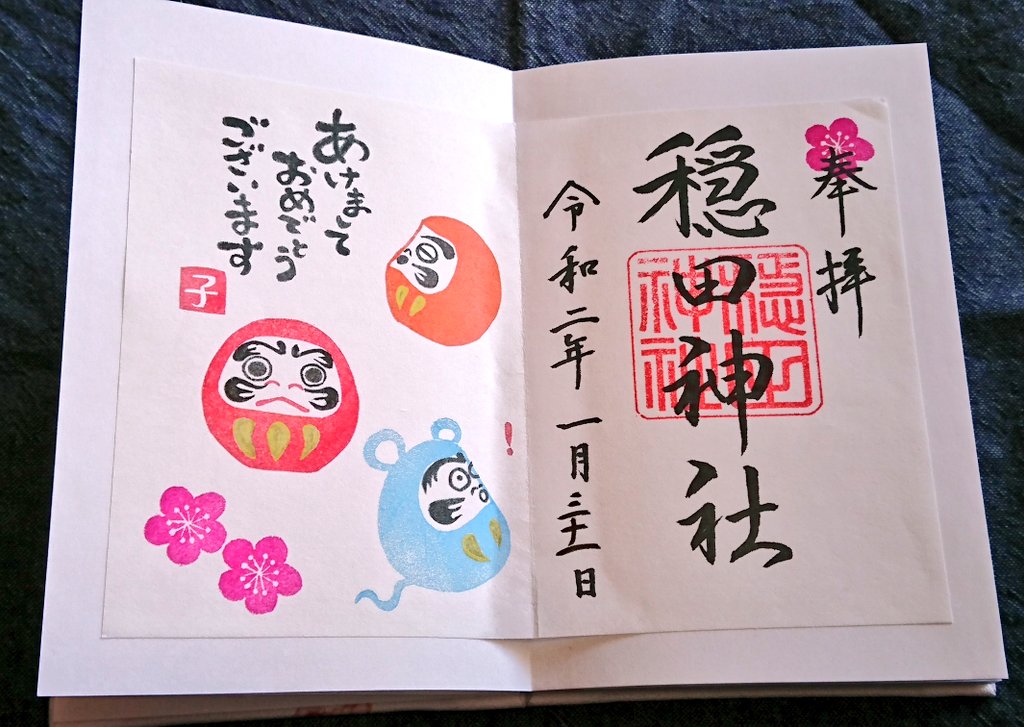 奉拝
穏田神社
穏田
神社
令和二年一月三十一日
あけまして
おめでとう
ございます
子